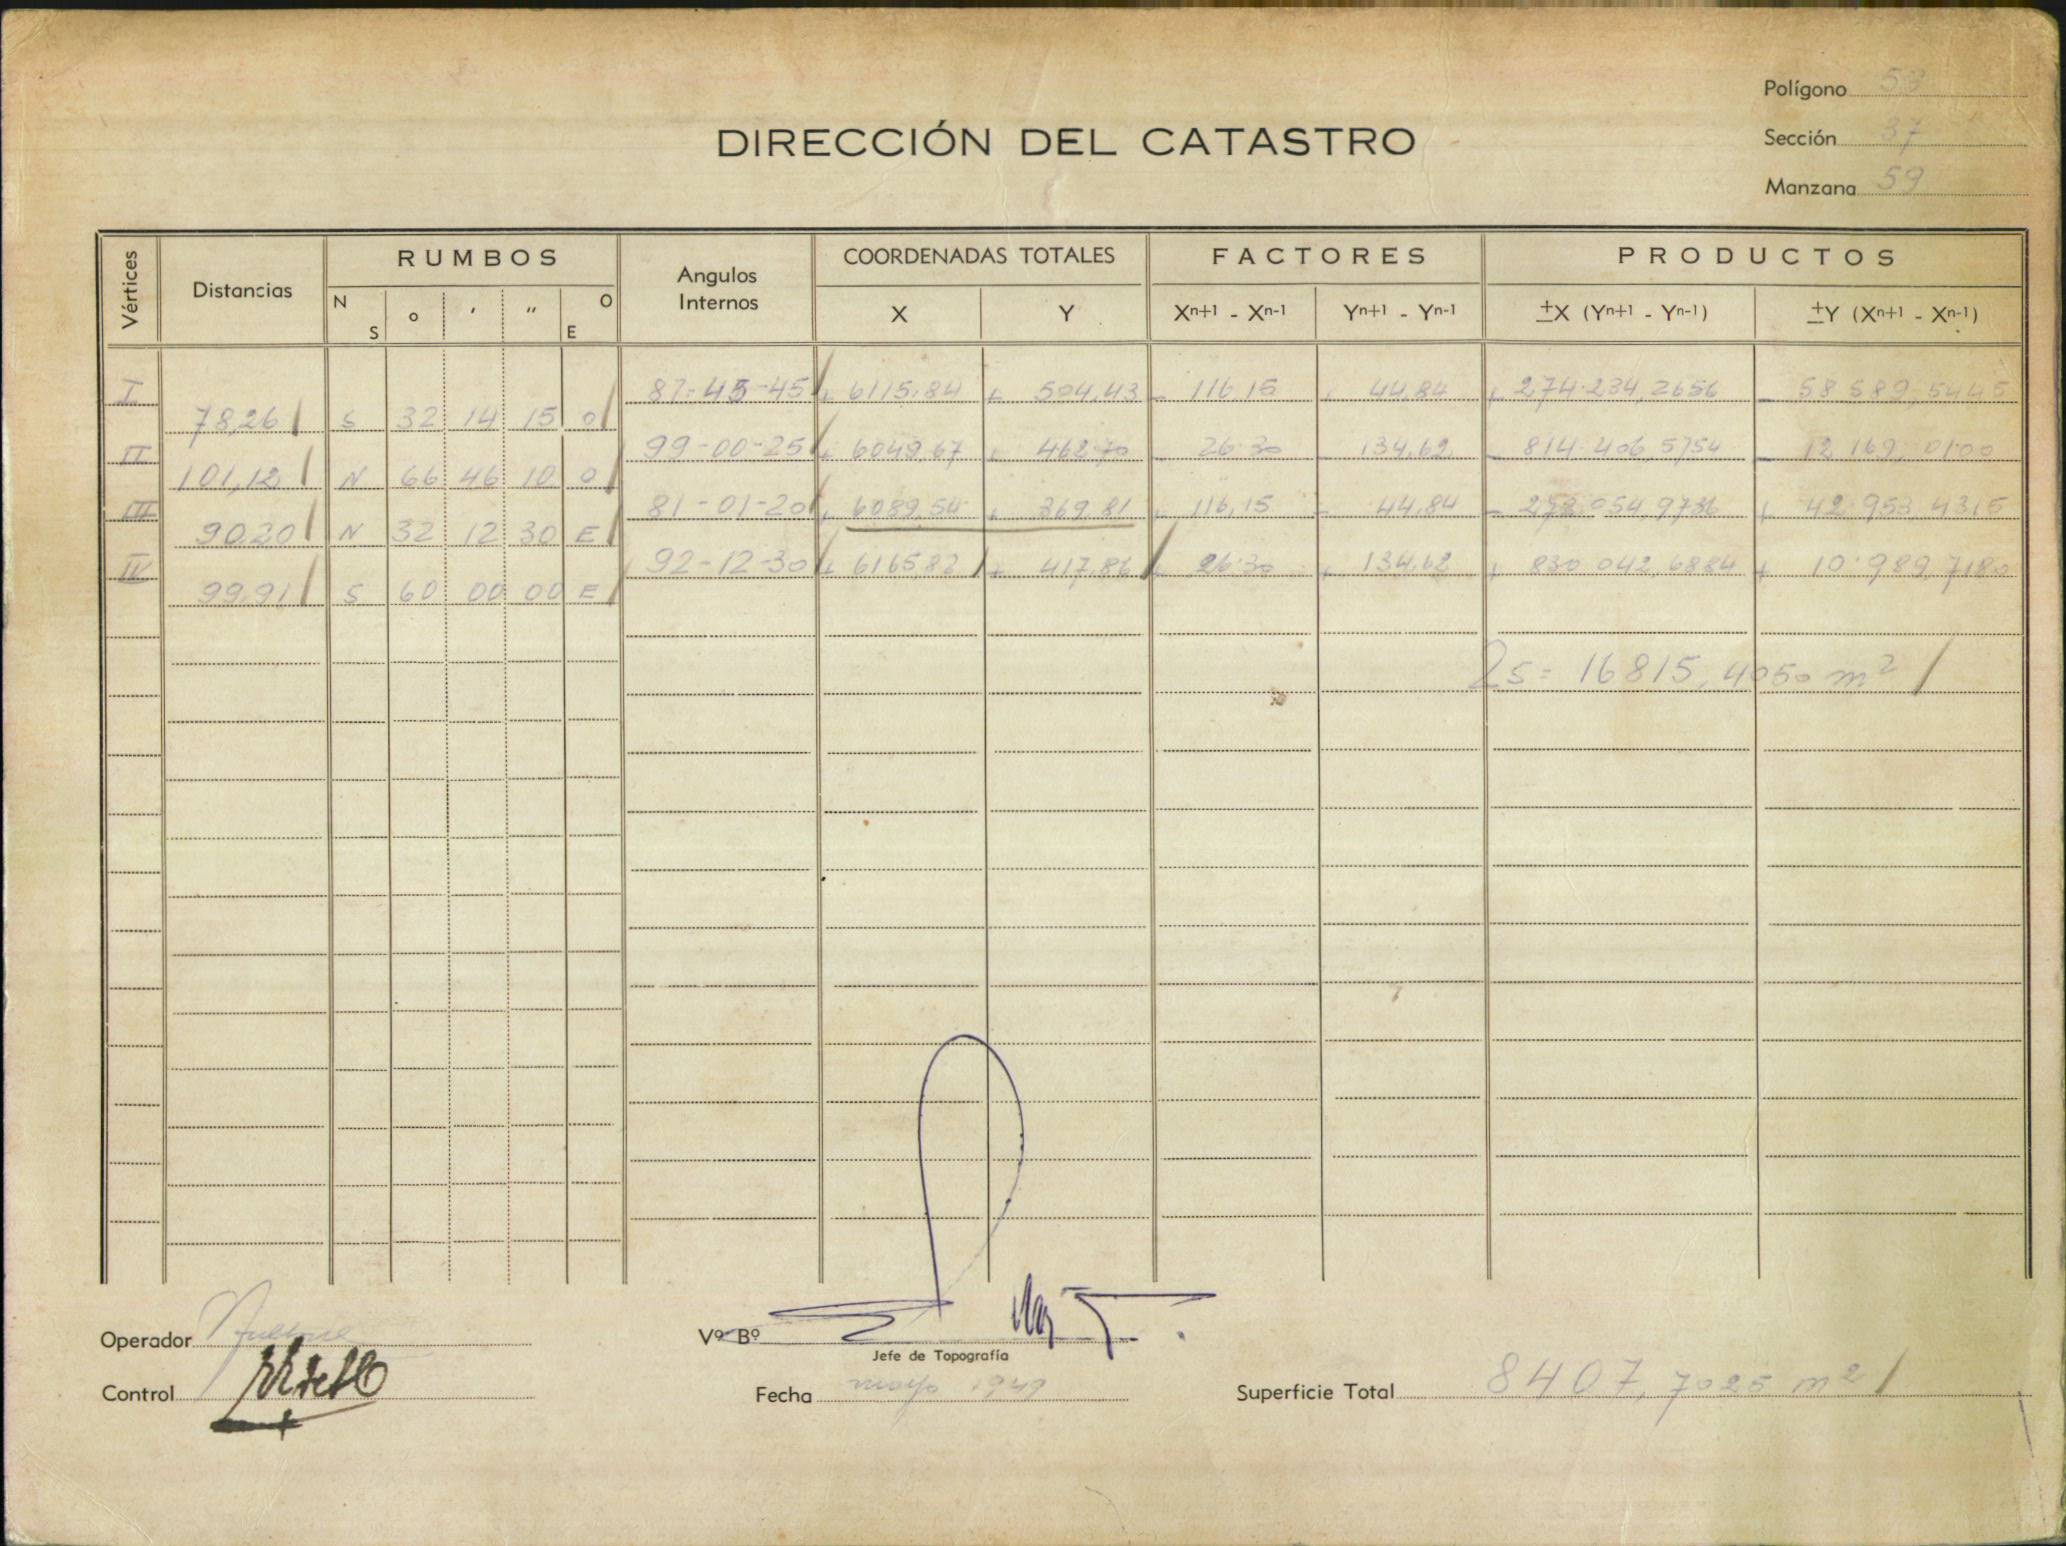 Polígono 58
DIRECCIÓN DEL CATASTRO
Sección 37
Manzana 59
Vértices Distancias RUMBOS Angulos Internos COORDENADAS TOTALES FACTORES PRODUCTOS
N S o ' " O E X Y Xn+1 - Xn-1 Yn+1 - Yn-1 ±X (Yn+1 - Yn-1) ±Y (Xn+1 - Xn-1)
I 87-45-45 + 6115,84 + 504,43 - 116,15 + 44,84 + 274.234,2656 - 58589,5445
78,26 S 32 14 15 O
II 99-00-25 + 6049,67 + 462,70 - 26.30 - 134,62 - 814.406,5754 - 12169,0100
101,12 N 66 46 10 O
III 81-01-20 + 6089,54 + 369,81 + 116,15 - 44,84 - 273.054,9736 + 42.953,4315
90,20 N 32 12 30 E
IV 92-12-30 + 6165,82 + 417,86 + 26.30 + 134,62 + 830.042,6884 + 10.989,7180
99,91 S 60 00 00 E
2S = 16815,4050 m²
Operador
Vº Bº
Jefe de Topografía
Control
Fecha mayo 1949
Superficie Total 8407,7025 m²